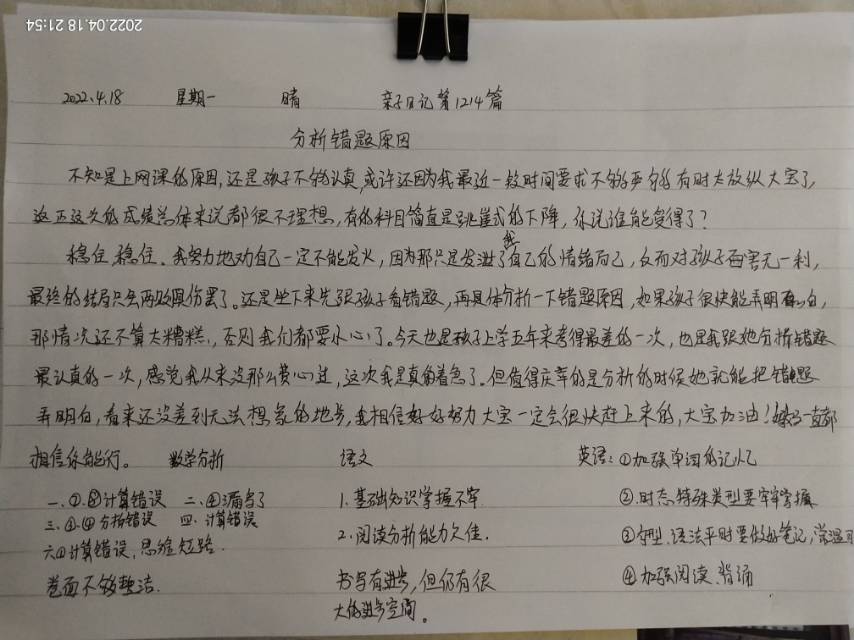 2022.04.18 21:54
2022.4.18 星期一 晴 亲子日记第1214篇
分析错题原因
不知是上网课的原因,还是孩子不够认真,或许还因为我最近一段时间要求不够严格有时太放纵大宝了,
这正这次的成绩总体来说都很不理想,有的科目简直是跳崖式的下降,你说谁能受得了?
稳住,稳住。我努力地劝自己一定不能发火,因为那只是发泄了我自己的情绪而已,反而对孩子百害无一利,
最终的结局只会两败俱伤罢了。还是坐下来先跟孩子看错题,再具体分析一下错题原因,如果孩子很快能弄明白,
那情况还不算太糟糕,否则我们都要小心了。今天也是孩子上学五年来考得最差的一次,也是我跟她分析错题
最认真的一次,感觉我从来没那么费心过,这次我是真的着急了。但值得庆幸的是分析的时候她就能把错题
弄明白,看来还没差到无法想象的地步,我相信好好努力大宝一定会很快赶上来的,大宝加油!妈妈一直都
相信你能行。 数学分析 语文 英语:①加强单词的记忆
一.⑦.⑧计算错误 二.④漏写了 1.基础知识掌握不牢 ②.时态.特殊类型要牢牢掌握
三.④分析错误 四.计算错误 2.阅读分析能力欠佳. ③句型.语法平时要做好笔记,常温习
六④计算错误,思维短路. 书写有进步,但仍有很 ④加强阅读.背诵
卷面不够整洁. 大的进步空间。